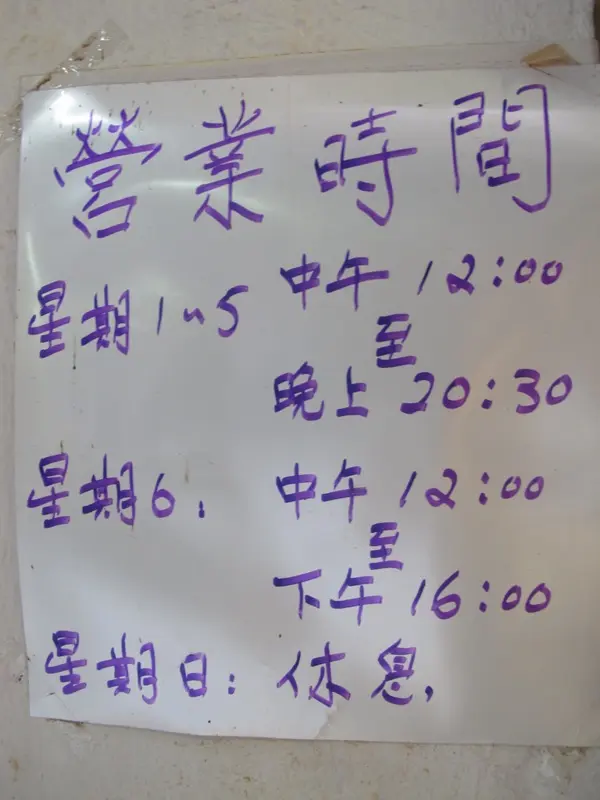 營業時間
星期1~5 中午 12:00
至
晚上 20:30
星期6: 中午 12:00
至
下午 16:00
星期日: 休息,